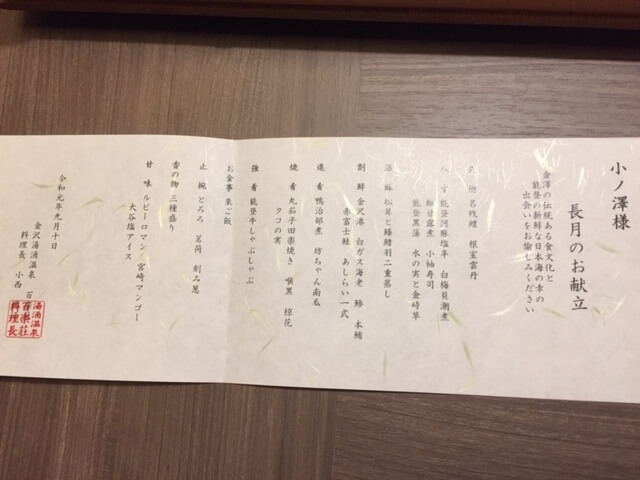 小ノ澤様
長月のお献立
金澤の伝統ある食文化と
能登の新鮮な日本海の幸の
出会いをお愉しみください
先 附 名残鱧 根室雲丹
八 寸 能登河豚塩辛 白梅貝潮煮
甘露煮 小袖寿司
能登黒藻 水の実と金時草
沼 鉢 松茸と鱶鰭羽二重蒸し
割 鮮 金沢港 白ガス海老 鰺 本鮪
赤富士鮭 あしらい一式
進 肴 鴨治部煮 坊ちゃん南瓜
焼 肴 丸茄子田楽焼き 喉黒 椋花
クコの実
強 肴 能登牛しゃぶしゃぶ
お食事 栗ご飯
止 椀 とろろ 茗荷 刻み葱
香の物 三種盛り
甘 味 ルビーロマン 宮崎マンゴー
大谷塩アイス
令和元年九月十日
金沢湯涌温泉 百
料理長 小西
湯涌温泉
百楽荘
料理長